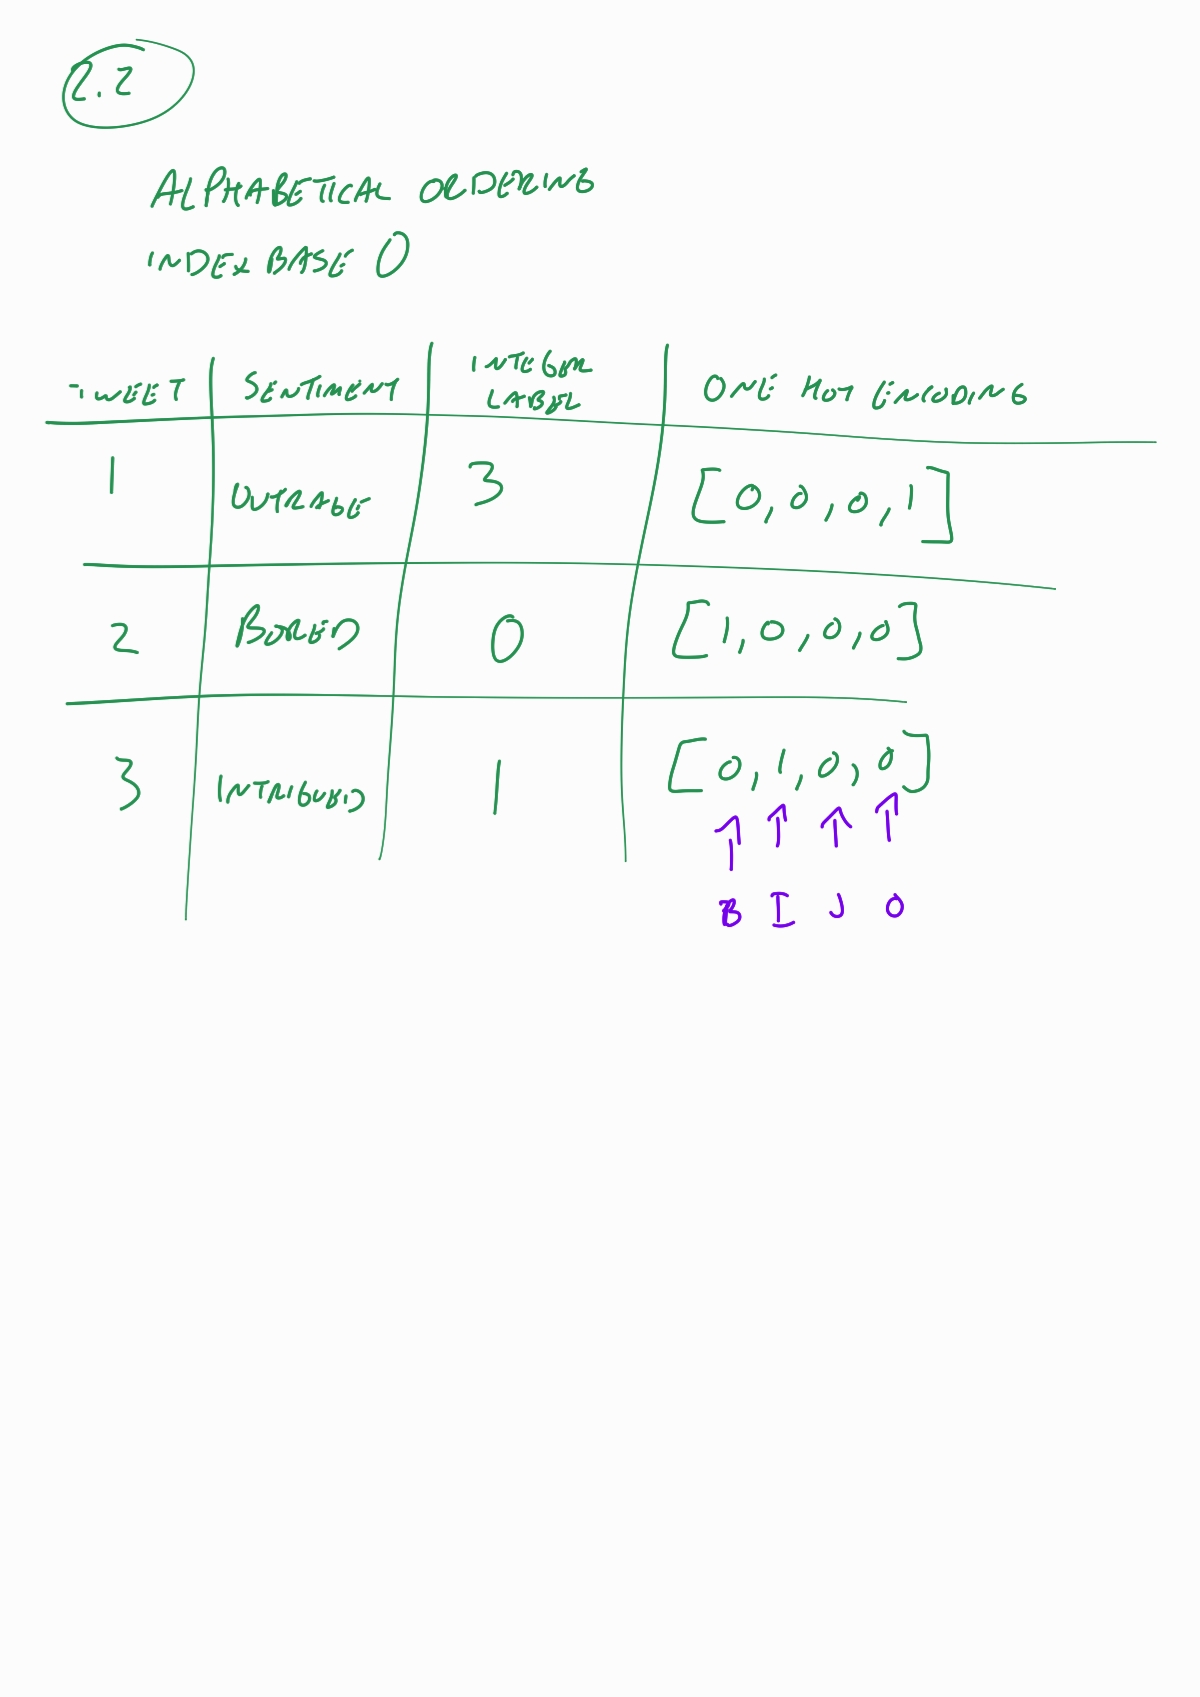 2.2
ALPHABETICAL ORDERING
INDEX BASE 0
TWEET SENTIMENT INTEGER LABEL ONE HOT ENCODING
1 OUTRAGE 3 [0,0,0,1]
2 BORED 0 [1,0,0,0]
3 INTRIGUED 1 [0,1,0,0]
↑ ↑ ↑ ↑
B I J O